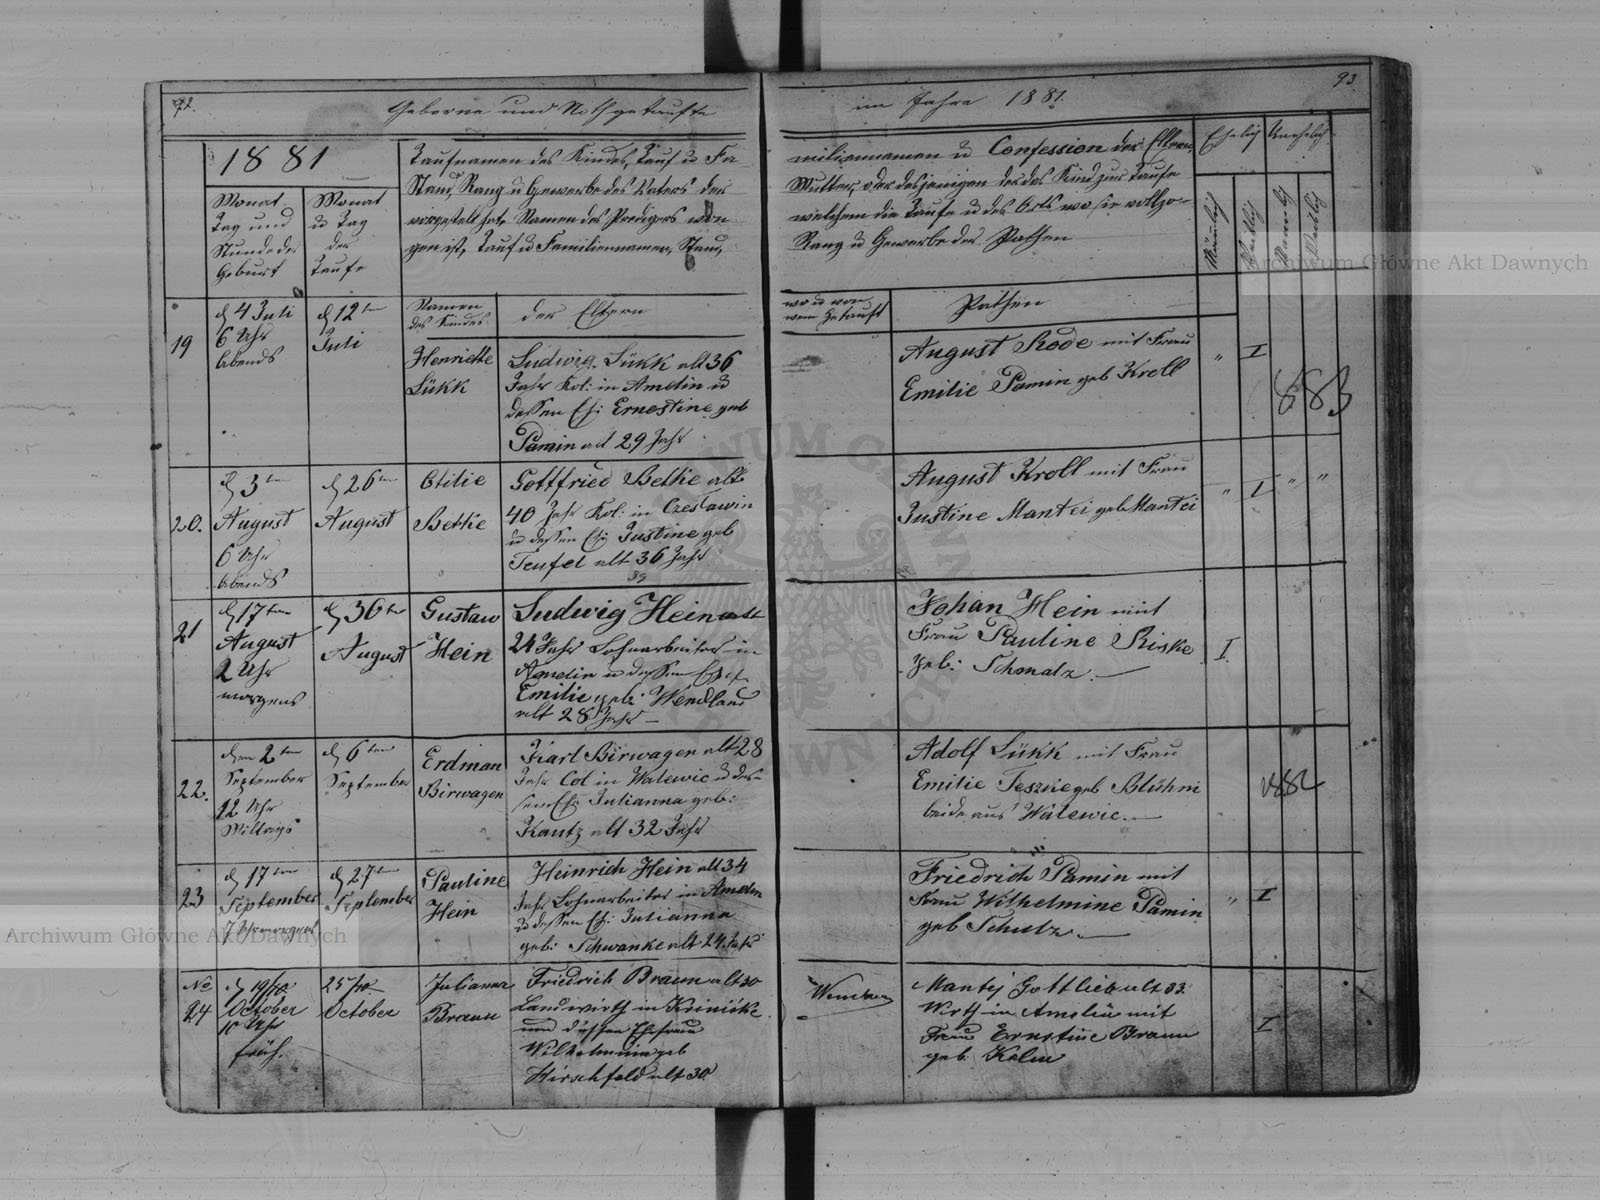 92.
Geborne und Nothgetaufte
im Jahre 1881.
93
1881
Monat
Tag und
Stunde der
Geburt
Monat
u Tag
der
Taufe
Taufnamen des Kindes, Tauf u Fa-
Stand, Rang u Gewerbe des Vaters der
vorgestelt hat, Namen des Predigers von
gen ist, Tauf u Familiennamen, Stand,
miliennamen u Confession der Eltern,
Mutter, oder desjenigen der das Kind zur Taufe
welchem die Taufe u des Orts wo sie vollzo-
Rang u Gewerbe der Pathen
Ehelich
Unehelich
Männlich
Weiblich
Männlich
Weiblich
Namen
des Kindes
der Eltern
wo u von
wem Getauft
Pathen
19
d 4 Juli
6 Uhr
Abends
d 12ten
Juli
Henriette
Lükk
Ludwig Lükk alt 36
Jahr Kol: in Amelin u
dessen Eh: Ernestine geb
Pamin alt 29 Jahr
August Rode mit Frau
Emilie Pamin geb Kroll
" I
883
20.
d 3ten
August
6 Uhr
Abends
d 26ten
August
Otilie
Betke
Gottfried Betke alt
40 Jahr Kol: in Czeslawin
u dessen Eh: Justine geb
Teufel alt 36 Jahr
39
August Kroll mit Frau
Justine Mantei geb Mantei
" I " "
21
d 17ten
August
2 Uhr
morgens
d 30ten
August
Gustaw
Hein
Ludwig Hein alt
24 Jahr Lohnarbeiter in
Amelin u dessen Ehef
Emilie geb: Wendland
alt 28 Jahr —
Johan Hein mit
Frau Pauline Riske
geb: Schmalz. —
I.
22.
den 2ten
September
12 Uhr
Mittags
d 6ten
September
Erdman
Birwagen
Karl Birwagen alt 28
Jahr Col in Walewic u des-
sen Eh: Julianna geb:
Kautz alt 32 Jahr
Adolf Lükk mit Frau
Emilie Teszke geb Blühm
beide aus Walewic. —
1882
23
d 17ten
September
7 Uhr morgens
d 27ten
September
Pauline
Hein
Heinrich Hein alt 34
Jahr Lohnarbeiter in Amelin
u dessen Eh: Julianna
geb: Schwanke alt 24 Jahr
Friedrich Pamin mit
Frau Wilhelmine Pamin
geb Schulz. —
" I
No
24
d 19/10
October
10 Uhr
früh.
25/10
October
Julianna
Braun
Friedrich Braun alt 30
Landwirth in Kriniske
und dessen Ehefrau
Wilhelmine geb
Hirschfeld alt 30
Mantej Gottlieb alt 33.
Wirth in Amelin mit
Frau Ernstine Braun
geb. Kelm
I
Archiwum Główne Akt Dawnych
Archiwum Główne Akt Dawnych